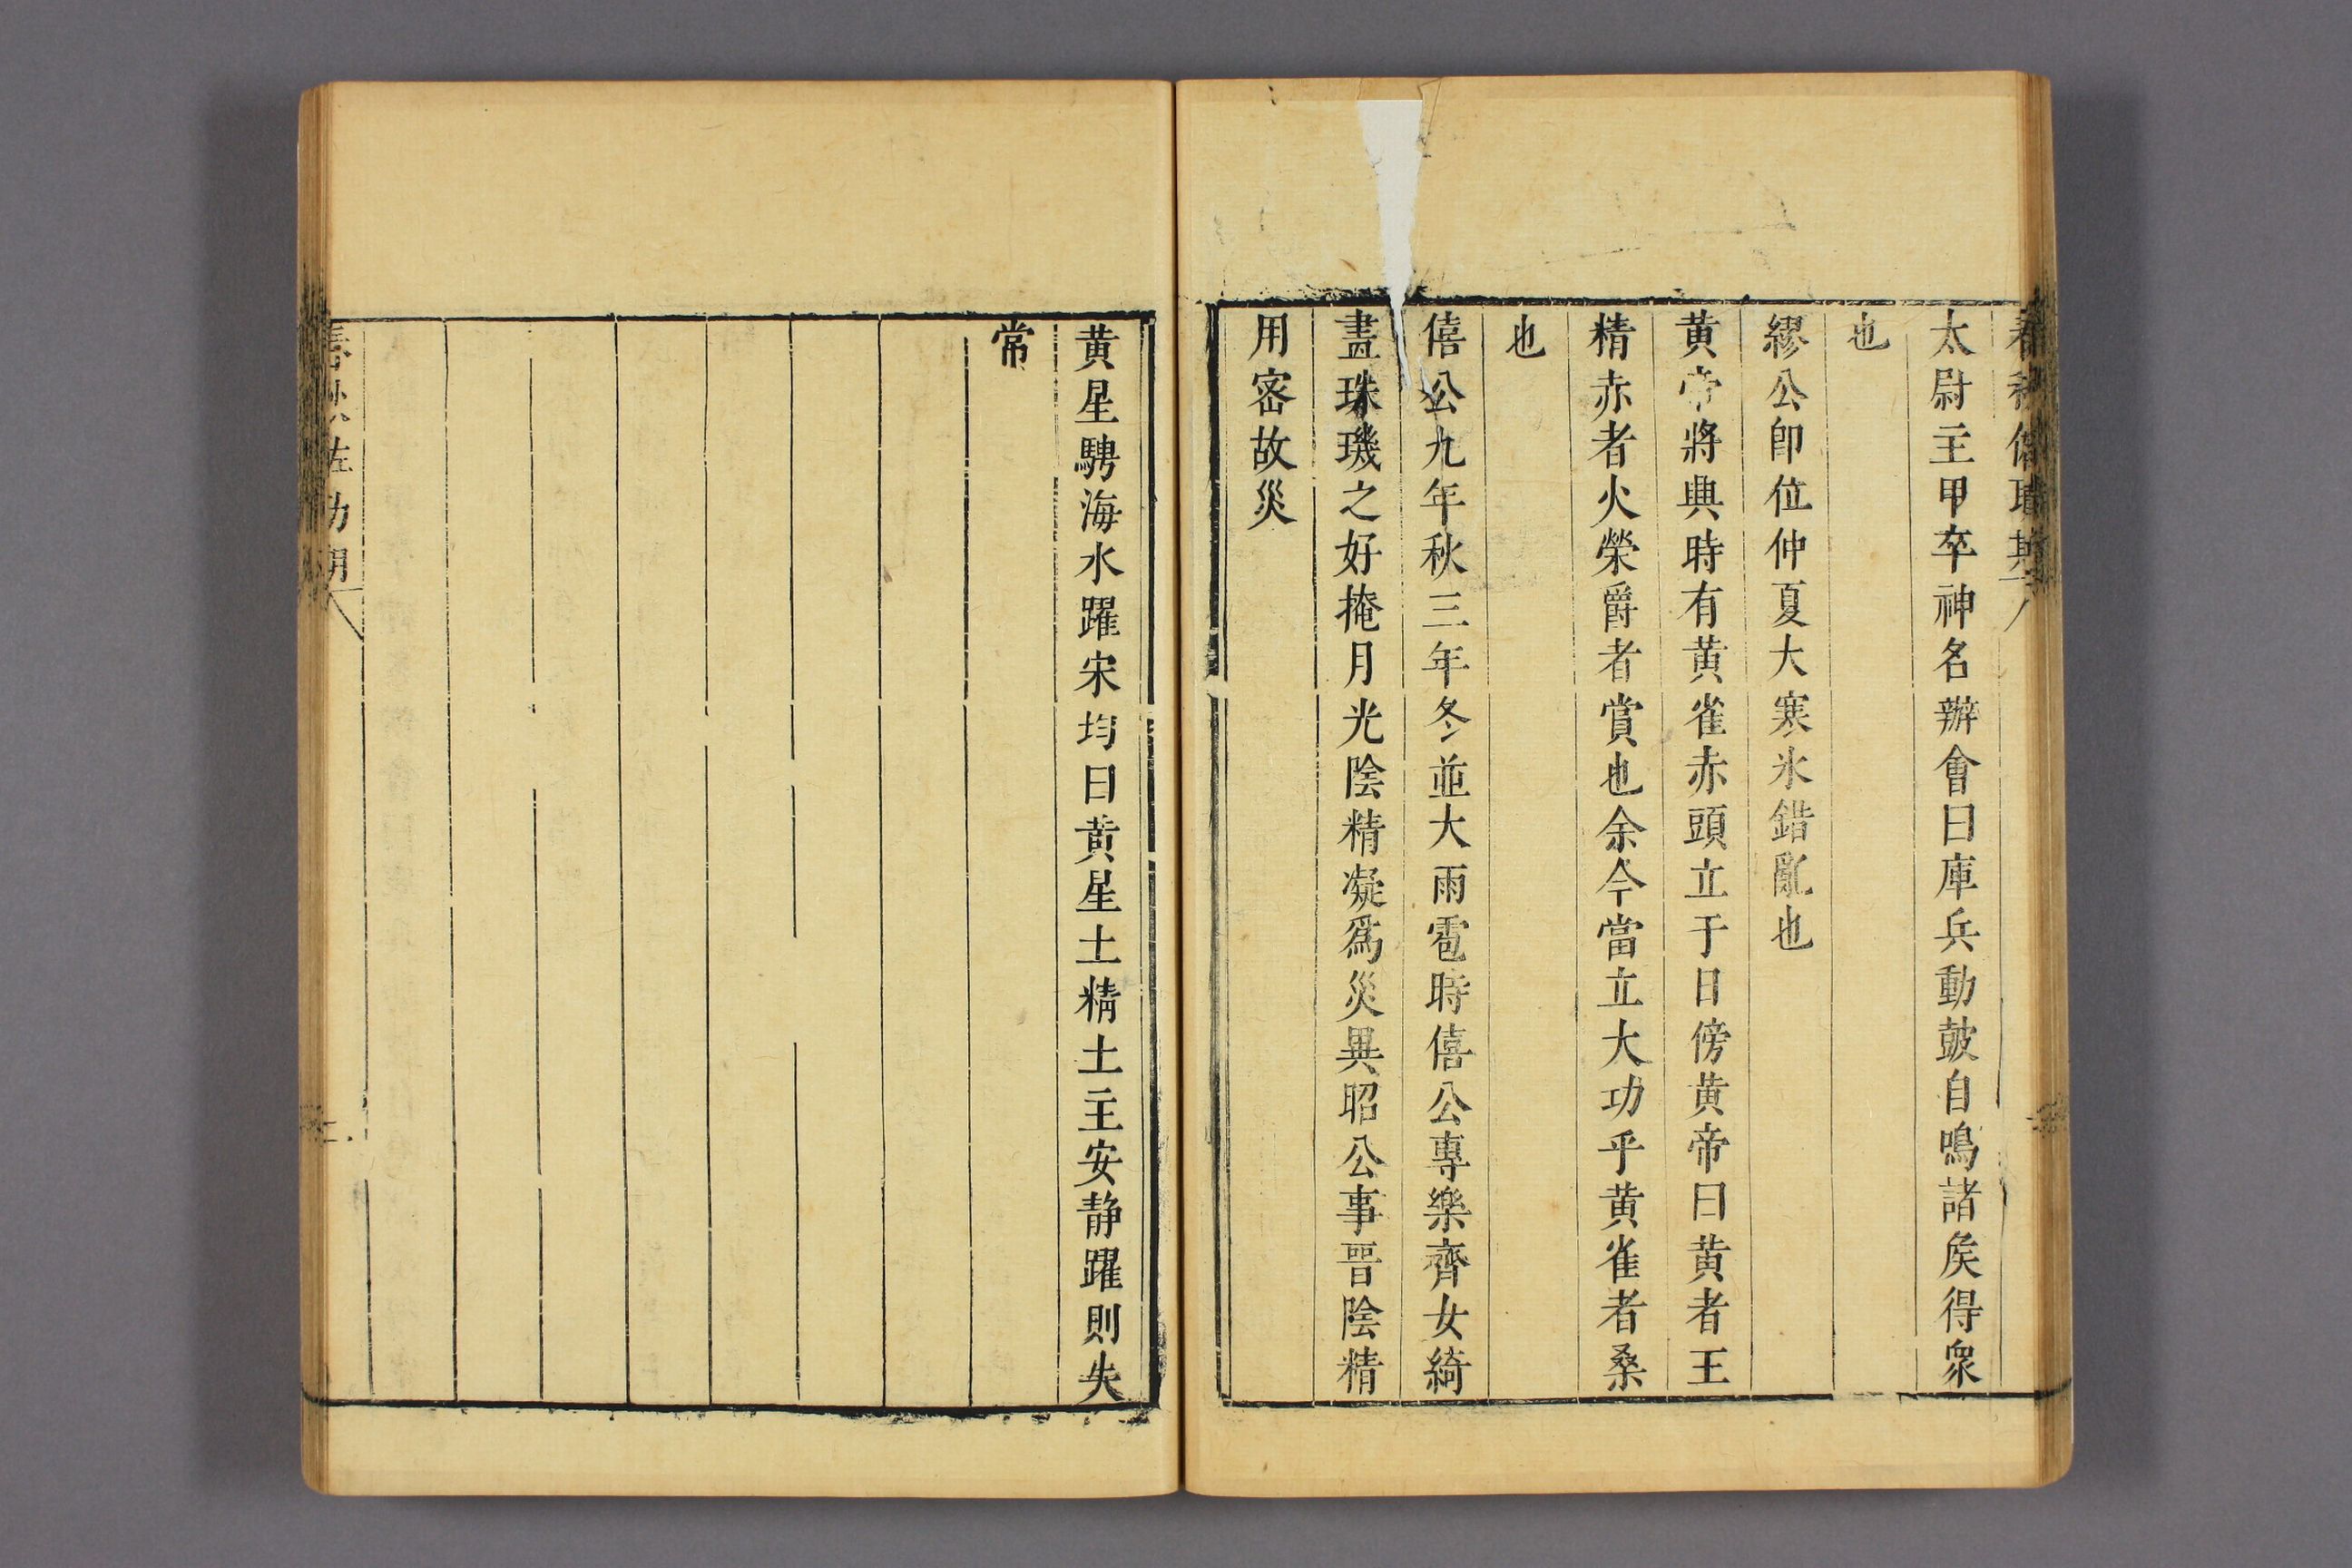 春秋備璿其
太尉主甲卒神名辦會曰庫兵動皷自鳴諸矦得衆
也
繆公卽位仲夏大寒氷錯亂也
黄帝將興時有黄雀赤頭立于日傍黄帝曰黄者王
精赤者火榮爵者賞也余今當立大功乎黄雀者桑
也
僖公九年秋三年冬並大雨雹時僖公專樂齊女綺
畫珠璣之好掩月光陰精凝爲災異昭公事晉陰精
用宻故災
黄星騁海水躍宋均曰黄星土精土主安静躍則失
常
春秋佐助期